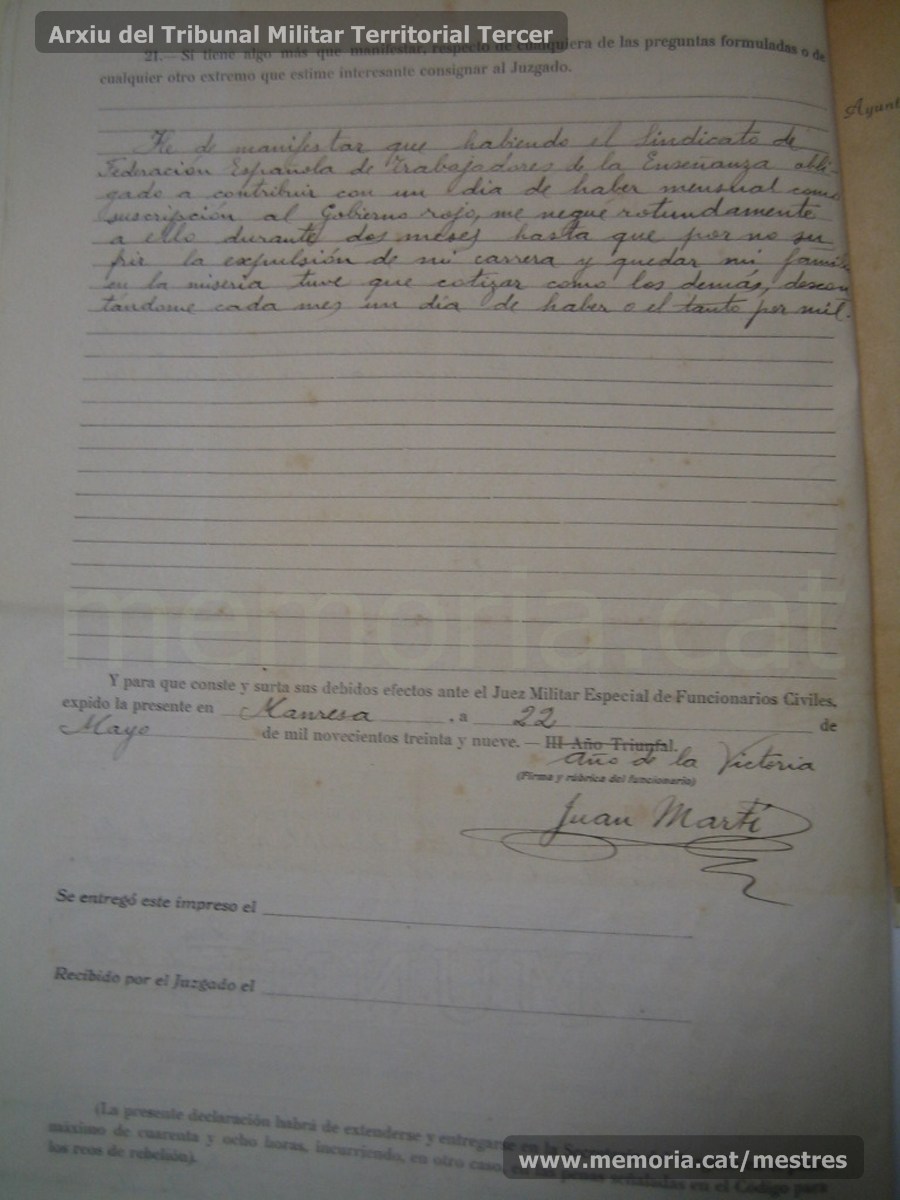 Arxiu del Tribunal Militar Territorial Tercer
21.— Si tiene algo más que manifestar, respecto de cualquiera de las preguntas formuladas o de
cualquier otro extremo que estime interesante consignar al Juzgado.
Ayunt
He de manifestar que habiendo el Sindicato de
Federación Española de Trabajadores de la Enseñanza obli-
gado a contribuir con un dia de haber mensual como
suscripción al Gobierno rojo, me negué rotundamente
a ello durante dos meses hasta que por no su
frir la expulsión de mi carrera y quedar mi famili
en la miseria tuve que cotizar como los demás, descon
tándome cada mes un dia de haber o el tanto por mil.
memoria.cat
Y para que conste y surta sus debidos efectos ante el Juez Militar Especial de Funcionarios Civiles,
expido la presente en Manresa, a 22 de
Mayo de mil novecientos treinta y nueve. — III Año Triunfal.
Año de la Victoria
(Firma y rúbrica del funcionario)
Juan Martí
Se entregó este impreso el
Recibido por el Juzgado el
(La presente declaración habrá de extenderse y entregarse en la
máximo de cuarenta y ocho horas, incurriendo, en otro caso, en las penas señaladas en el Código para
los reos de rebelión).
www.memoria.cat/mestres